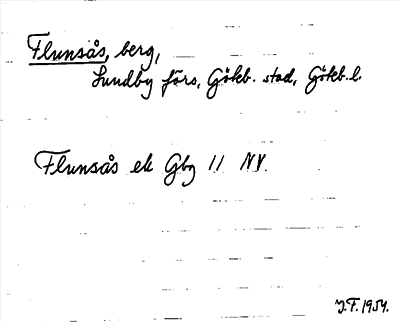 Flunsås, berg,
Lundby förs, Göteb. stad, Göteb. l.
Flunsås ek Gbg 11 NV.
J.F. 1954.